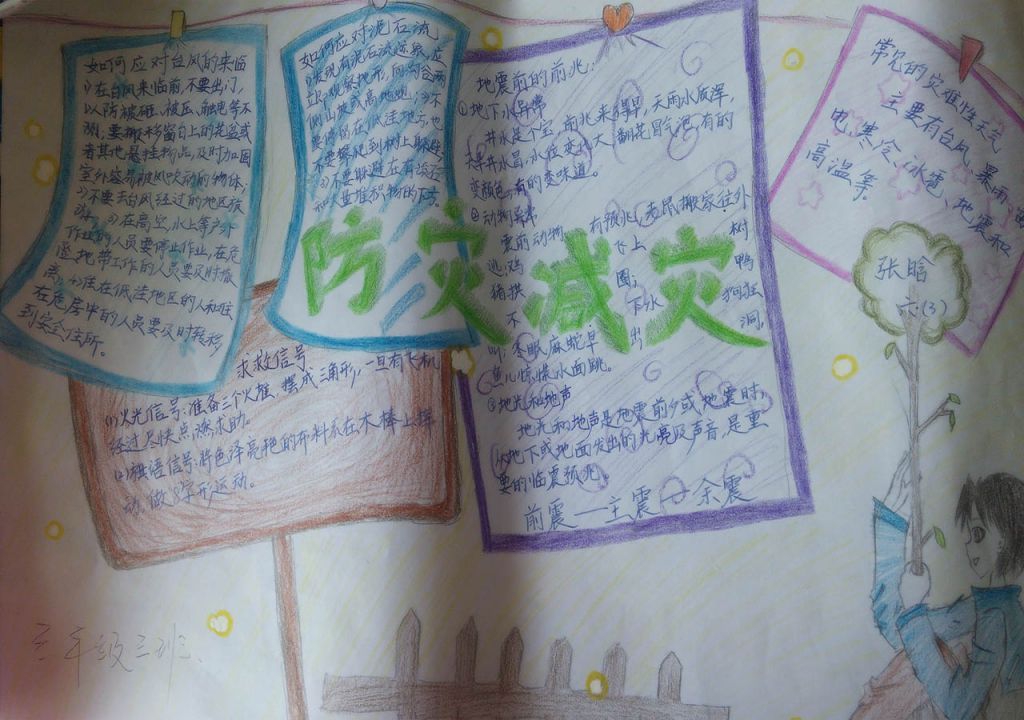 如何应对台风的来临
1)在台风来临前,不要出门,
以防被砸、被压、触电等不
测,要搬移窗台上的花盆或
者其他悬挂物品,及时加固
室外易被风吹动的物体;
2)不要去台风经过的地区旅
3)在高空,水上等户外
作业的人员要停止作业,在危
地带工作的人员要及时撤
4)住在低洼地区的人和住
在危房中的人员要及时转移
到安全住所。
如何应对泥石流
1)发现有泥石流迹象,应
立即观察地形,向沟谷两
侧山坡或高地跑;2)不
要停留在低洼地方,也
不要攀爬到树上躲避;
3)不要躲避在有滚石
和大量堆积物的下方。
地震前的前兆:
①地下水异常
井水是个宝,前兆来得早,天雨水质浑,
天旱井水冒,水位变化大,翻花冒气泡,有的
变颜色,有的变味道。
②动物异常
震前动物有预兆,老鼠搬家往外
逃;鸡飞上树鸭
猪拱圈;下水狗狂
不
叫;冬眠麻蛇早出洞,
鱼儿惊慌水面跳。
③地光和地声
地光和地声是地震前夕或地震时,
从地下或地面发出的光亮及声音,是重
要的临震预兆。
前震—主震—余震
常见的灾难性天气
主要有台风、暴雨、
寒冷、冰雹、地震和
高温等。
防灾减灾
张晗
六(3)
求救信号
(1)火光信号:准备三个火堆,摆成三角形,一旦有飞机
经过尽快点燃求助。
(2)旗语信号:将色泽亮艳的布料系在木棒上挥
动,做8字形运动。
年级三班